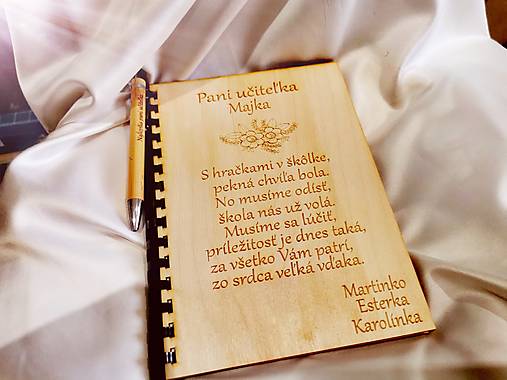 Pani učiteľka
Majka
S hračkami v škôlke,
pekná chvíľa bola.
No musíme odísť,
škola nás už volá.
Musíme sa lúčiť,
príležitosť je dnes taká,
za všetko Vám patrí,
zo srdca veľká vďaka.
Martinko
Esterka
Karolínka